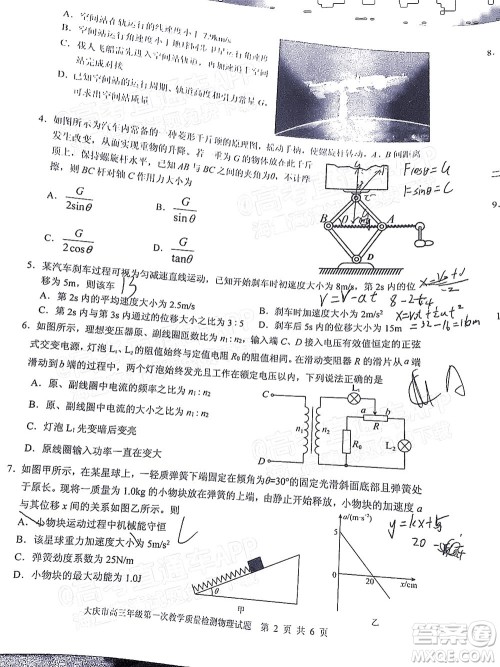 A. 空间站在轨运行的线速度小于7.9km/s
B. 空间站运行角速度小于地球自转角速度
C. 载人飞船需先进入空间站轨道,再加速追上空间
站完成对接
D. 已知空间站的运行周期、轨道高度和引力常量G,
可求出空间站质量
4. 如图所示为汽车内常备的一种菱形千斤顶的原理图,摇动手柄,使螺旋杆转动,A、B间距离
发生改变,从而实现重物的升降。若一重为G的物体放在此千斤
顶上,保持螺旋杆水平,已知AB与BC之间的夹角为θ,不计摩
擦,则BC杆对轴C作用力大小为
A. G/2sinθ
B. G/sinθ
C. G/2cosθ
D. G/tanθ
G
C
B
A
D
θ
Fcosθ=G
F=sinθ=G
5. 某汽车刹车过程可视为匀减速直线运动,已知开始刹车时初速度大小为8m/s,第2s内的位
移为5m,则该车
B
A. 第2s内的平均速度大小为2.5m/s
B. 刹车加速度大小为
C. 第2s内与第3s内的位移大小之比为3:5
V=V-at
8-2t
=32-16=16m
6. 如图所示,理想变压器原、副线圈匝数比为n₁:n₂,输入端C、D接入电压有效值恒定的正弦
式交变电源,灯泡L₁、L₂的阻值始终与定值电阻R₀的阻值相同。在滑动变阻器R的滑片从a端
滑动到b端的过程中,两个灯泡始终发光且工作在额定电压以内,下列说法正确的是
A. 原、副线圈中电流的频率之比为n₁:n₂
B. 原、副线圈中电流的大小之比为n₁:n₂
C. 灯泡L₂先变暗后变亮
D. 原线圈输入功率一直变大
C
D
L₁
a
b
R
R₀
L₂
A
7. 如图甲所示,在某星球上,一轻质弹簧下端固定在倾角为θ=30°的固定光滑斜面底部且弹簧处
于原长。现将一质量为1.0kg的小物块放在弹簧的上端,由静止开始释放,小物块的加速度a
与其位移x间的关系如图乙所示。则
A. 小物块运动过程中机械能守恒
B. 该星球重力加速度大小为5m/s²
C. 弹簧劲度系数为25N/m
D. 小物块的最大动能为1.0J
θ
甲
a/(m·s⁻²)
5
0
20
x/cm
乙
20
大庆市高三年级第一次教学质量检测物理试题 第 2 页 共 6 页
8.
9.